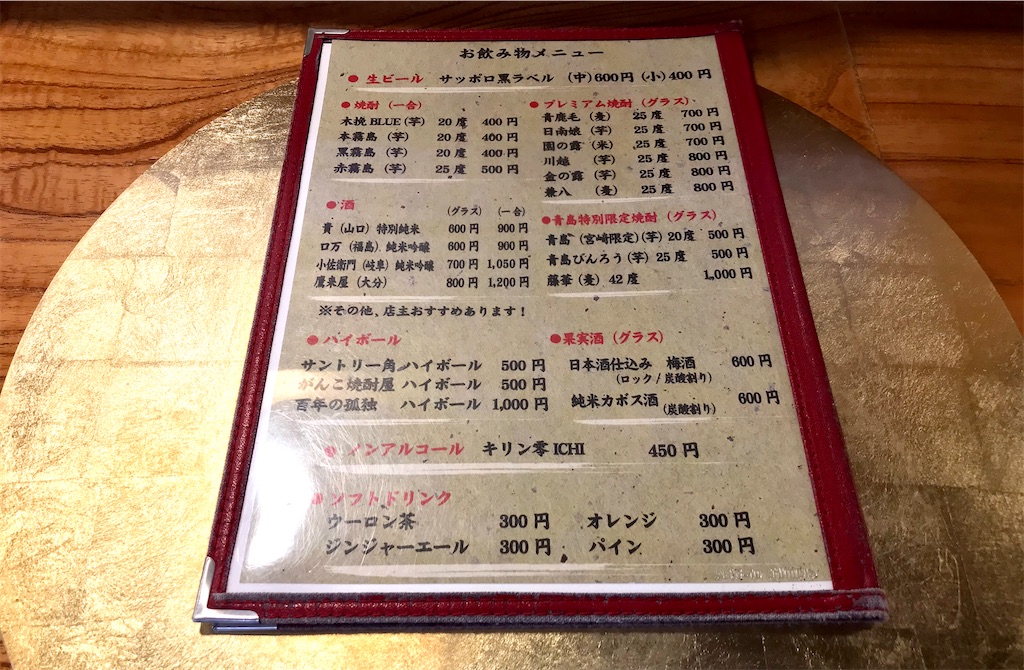 お飲み物メニュー
● 生ビール サッポロ黒ラベル (中)600円 (小)400円
● 焼酎 (一合)
木挽BLUE(芋) 20度 400円
本霧島 (芋) 20度 400円
黒霧島 (芋) 20度 400円
赤霧島 (芋) 25度 500円
● プレミアム焼酎 (グラス)
青鹿毛 (麦) 25度 700円
日南娘 (芋) 25度 700円
園の露 (米) 25度 700円
川越 (芋) 25度 800円
金の露 (芋) 25度 800円
兼八 (麦) 25度 800円
● 酒 (グラス) (一合)
貴 (山口) 特別純米 600円 900円
ロ万 (福島) 純米吟醸 600円 900円
小佐衛門 (岐阜) 純米吟醸 700円 1,050円
鷹来屋 (大分) 800円 1,200円
※その他、店主おすすめあります!
●青島特別限定焼酎 (グラス)
青島 (宮崎限定)(芋) 20度 500円
青島びんろう(芋) 25度 500円
藤華(麦) 42度 1,000円
● ハイボール
サントリー角ハイボール 500円
がんこ焼酎屋 ハイボール 500円
百年の孤独 ハイボール 1,000円
●果実酒 (グラス)
日本酒仕込み 梅酒 600円
(ロック/炭酸割り)
純米カボス酒 (炭酸割り) 600円
● ノンアルコール キリン零ICHI 450円
● ソフトドリンク
ウーロン茶 300円 オレンジ 300円
ジンジャーエール 300円 パイン 300円